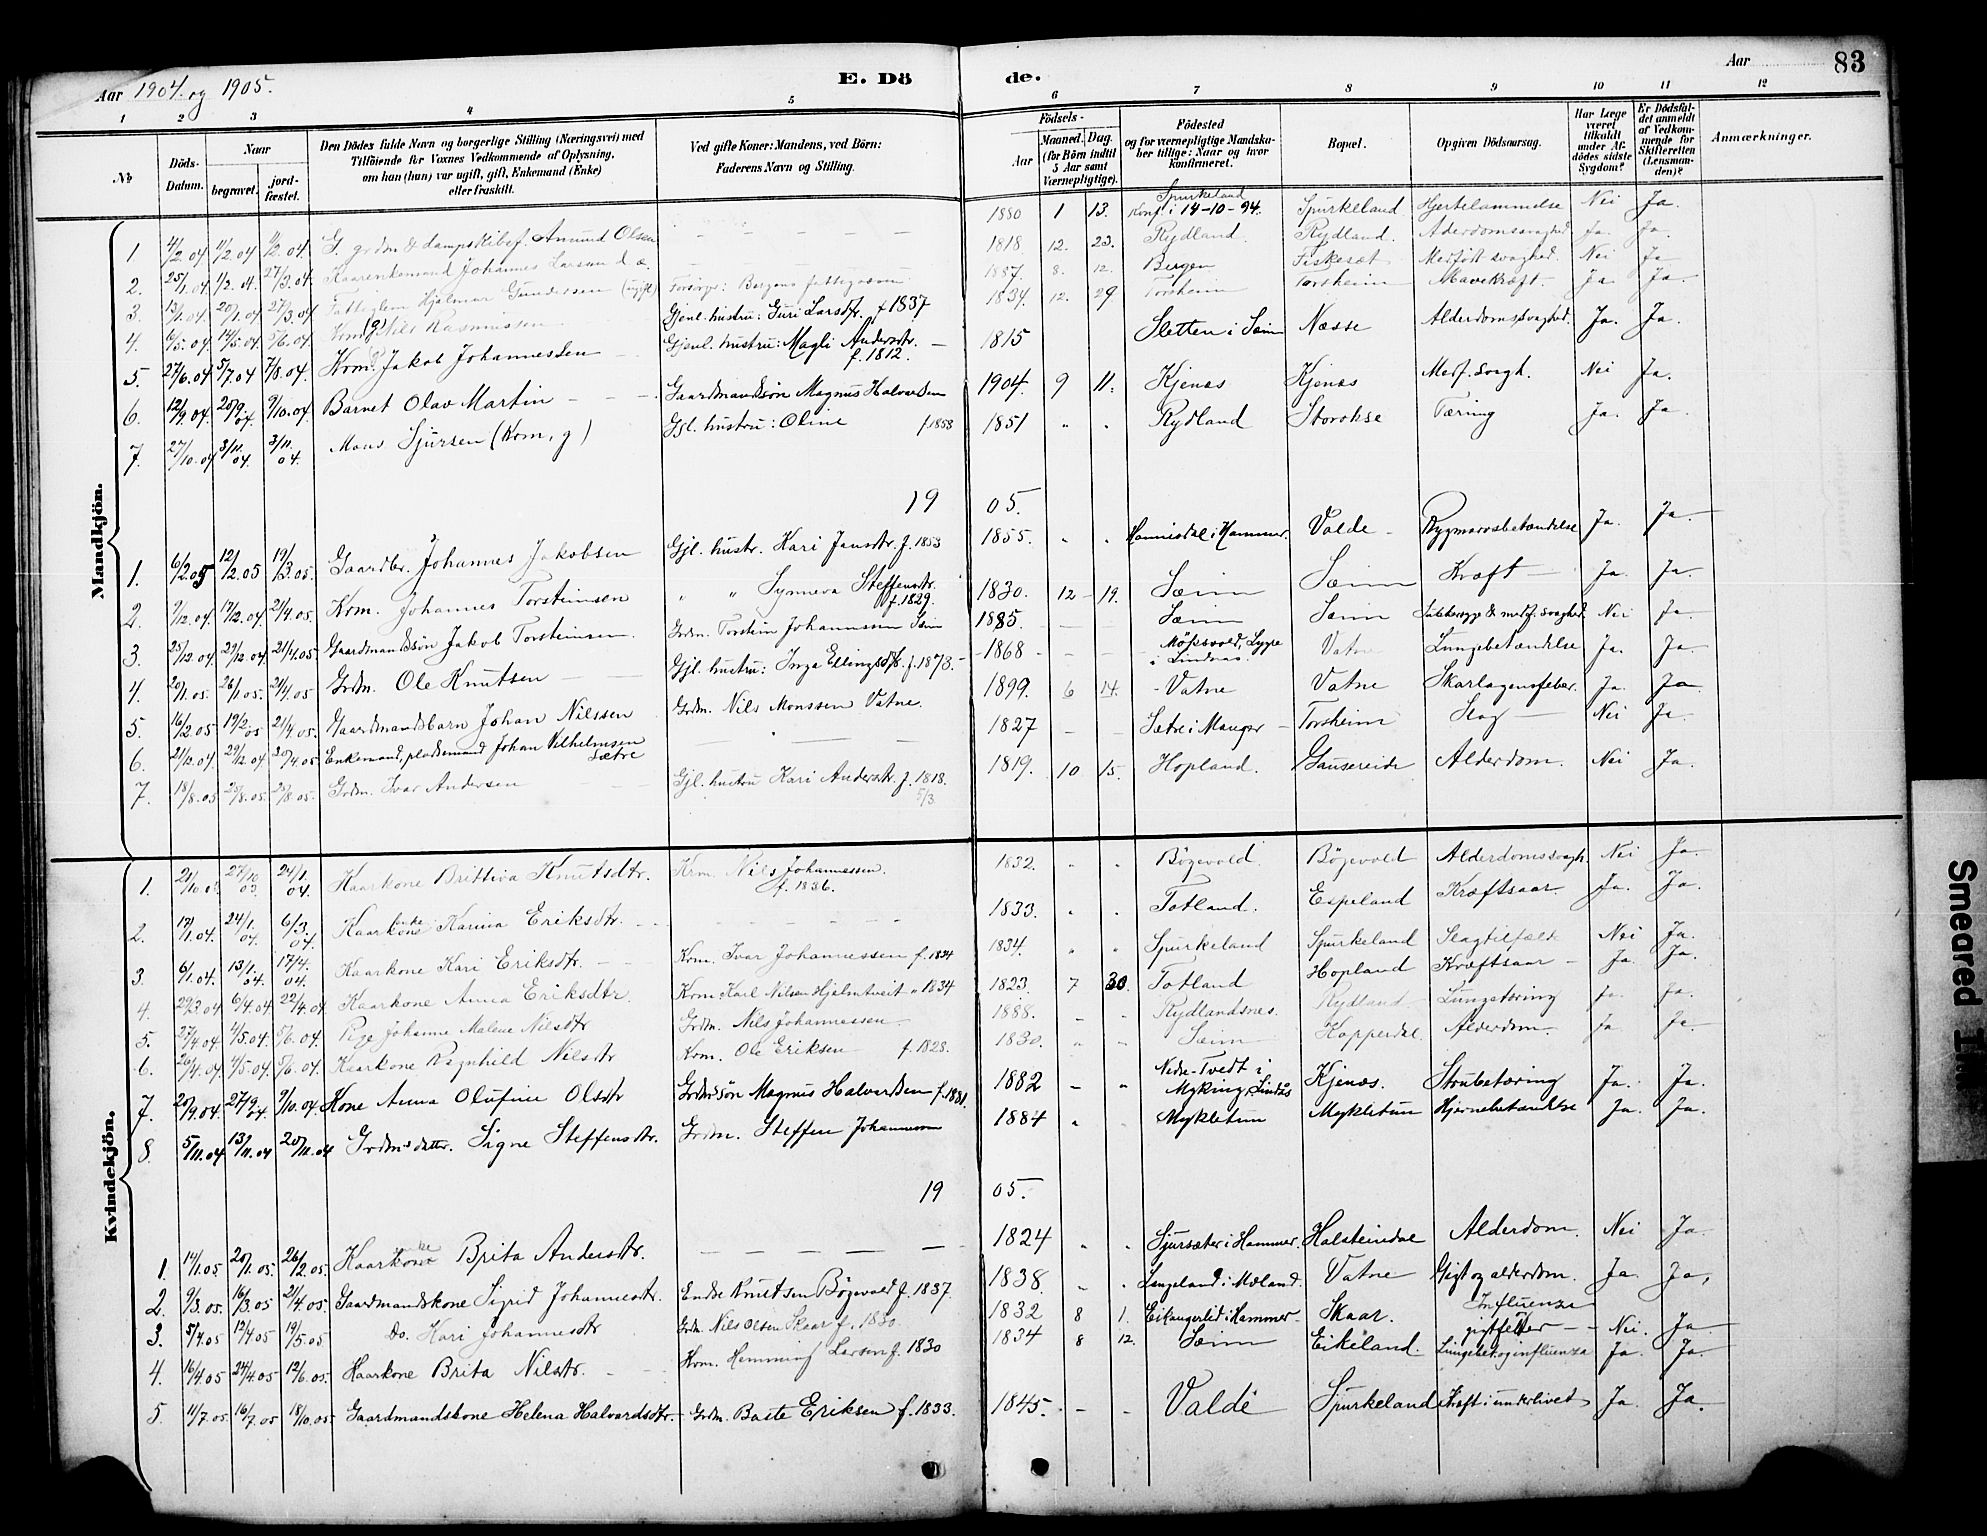 Aar 1904 og 1905.
E. Dö de.
Aar
83
1 2 3 4 5 6 7 8 9 10 11 12
№
Döds-Datum.
Naar
begravet.
jord-fæstet.
Den Dödes fulde Navn og borgerlige Stilling (Næringsvei) med
Tilföiende for Voxnes Vedkommende af Oplysning,
om han (hun) var ugift, gift, Enkemand (Enke)
eller fraskilt.
Ved gifte Koner: Mandens, ved Börn:
Faderens Navn og Stilling.
Födsels-
Aar
Maaned. Dag.
(for Börn indtil
5 Aar samt
Værnepligtige).
Födested
og for værnepligtige Mandska-
ber tillige: Naar og hvor
konfirmeret.
Bopæl.
Opgiven Dödsaarsag.
Har Læge
været
tilkaldt
under Af-
dödes sidste
Sygdom?
Er Dödsfal-
det anmeldt
af Vedkom-
mende for
Skifteretten
(Lensman-
den)?
Anmærkninger.
Mandkjön.
1 4/2.04 11/2.04 11/2.04. G. grdm & dampskibsf. Anund Olsen 1880 1 13. Spurkeland Konf. i 14-10-94. Spurkeland Hjertelammelse Nei Ja.
2. 25/1.04 1/2.04. 27/3.04. Kaarenkemand Johannes Larsen 1818 12. 23. Rydland. Rydland. Alderdomssvaghed Ja. Ja.
3. 13/1.04. 20/1.04 27/3.04 Fattiglem Hjalmar Gundersen (ugift) Forsørges: Bergens fattigvæsen 1887. 8. 12. Bergen Fiskesæt Medfødt svaghed. Nei Ja
4. 6/5.04 14/5.04 5/6.04. Krm. (g) Nils Rasmussen Gjenl. hustru: Guri Larsdtr. f 1837 1834. 12. 29 Torsheim Torsheim Mavekræft. Ja. Ja.
5. 27/6.04 5/7.04 7/8.04. Krm. Jakob Johannessen Gjenl. hustru: Magli Andersdtr. f. 1812. 1815 Sletten i Seim Næsse Alderdomssvaghed. Ja. Ja.
6. 12/9.04. 20/9.04 9/10.04 Barnet Olav Martin Gaardmandssøn Magnus Halvardsen 1904. 9 11. Kjenæs Kjenæs Medf. svagh. Nei Ja.
7. 27/10.04 3/11.04. 3/11.04. Mons Sjursen (Krm, g) Gjl. hustru: Oline f 1858 1851 " " Rydland Storokse Tæring Ja. Ja.
19 05.
1. 6/2.05 12/2.05 19/3.05. Gaardbr. Johannes Jakobsen Gjl. hustr. Kari Jansdtr. f. 1853 1855. " " i Hammer. Valde Rygmarvsbetændelse Ja. Ja.
2. 9/12.04. 17/12.04 21/4.05. Krm. Johannes Torsteinsen " " Synneva Steffensdtr. f. 1829. 1830. 12 19. Seim Seim Kræft Ja. Ja.
3. 25/12.04. 29/12.04. 21/4.05. Gaardmandssøn Jakob Torsteinsen Grdm. Torstein Johannessen Seim 1885. Seim Seim & medf. svaghed. Nei Ja
4. 20/1.05. 26/1.05. 21/4.05 Grdm. Ole Knutsen Gjl. hustru: Inga Ellingsdtr. f. 1873. 1868 i Lindaas. Vatne Lungebetændelse Ja. Ja
5. 16/2.05 19/2.05 21/4.05 Gaardmandsbarn Johan Nilssen Grdm. Nils Monssen Vatne. 1899. 6 14. Vatne Vatne Skarlagensfeber. Ja. Ja
6. 21/12.04. 29/12.04 30/4.05 Enkemand, pladsmand Johan Vilhelmsen Sætre 1827 Sætre i Manger Torsheim Slag Nei Ja.
7. 18/8.05 25/8.05. 25/8.05. Grdm. Ivar Andersen Gjl. hustru Kari Andersdtr. f. 1818. 5/3 1819. 10 15. Hopland. Gausereide Alderdom. Nei Ja.
Kvindekjön.
1. 21/10.03. 27/10.03. 24/1.04. Kaarkone Brittiva Knutsdtr. Krm. Nils Johannessen. f. 1836. 1832. " " Bøgevold. Bøgevold Alderdomssvagh. Nei Ja.
2. 17/1.04. 24/1.04. 6/3.04. Kaarenke Karina Eriksdtr. 1833. " " Totland. Espeland Kræftsaar. Ja. Ja.
3. 6/1.04. 13/1.04. 17/4.04. Kaarkone Kari Eriksdtr. Krm. Ivar Johannessen f. 1834 1834. " " Spurkeland Spurkeland Slagtilfælde Nei Ja.
4. 29/3.04 6/4.04 22/4.04 Kaarkone Anna Eriksdtr Krm. Karl Nilsen Hjelmtveit " 1834 1823. 7 30. Totland Hopland Kræftsaar Ja. Ja.
5. 27/4.04 4/5.04. 5/6.04. Pige Johanne Malene Nilsdtr Grdm. Nils Johannessen. 1888. Rydlandsnes. Rydland Lungetæring Ja. Ja.
6. 26/4.04. 4/5.04. 5/6.04. Kaarkone Ragnhild Nilsdtr Krm. Ole Eriksen f. 1828. 1830. " " Seim Hopperdal Alderdom. Ja Ja.
7. 20/9.04. 27/9.04. 9/10.04 Kone Anna Olufine Olsdtr Grdmssøn Magnus Halvardsen f. 1881. 1882 " Nedre-Tvedt i Myking, Lindås Kjenæs. Strubetæring Ja. Ja.
8. 5/11.04 13/11.04 20/11.04 Grdm's datter. Signe Steffensdtr. Grdm. Steffen Johannessen 1884 " Mykletun Mykletun Hjernebetændelse Ja. Ja.
19 05.
1. 14/1.05. 20/1.05. 26/2.05. Kaarenke Brita Andersdtr. 1824 " " Sjursæter i Hammer. Halsteindal Alderdom. Nei Ja.
2. 9/3.05. 16/3.05 21/4.05. Gaardmandskone Sigrid Johannesdtr. Endre Knutsen Bøgevold f. 1837. 1838. " " Langeland i Mæland. Vatne Gigt og alderdom. Ja. Ja,
3. 5/4.05 12/4.05 19/5.05 Do. Kari Johannesdtr Grdm. Nils Olsen Skaar f. 1830. 1832 8 1. Eikangerlid i Hammer Skaar. Influenza gigtfeber Nei. Ja
4. 16/4.05 24/4.05 12/6.05. Kaarkone Brita Nilsdtr. Krm. Hemming Larsen f. 1830 1834 8 12. Seim Eikeland. Lungebet. og influenza Ja. Ja.
5. 11/7.05. 16/7.05 18/10.05 Gaardmandskone Helena Halvardsdtr. Grdm. Baste Eriksen f. 1833. 1845. Valde Spurkeland Kræft i underlivet Ja. Ja.
Smeared In